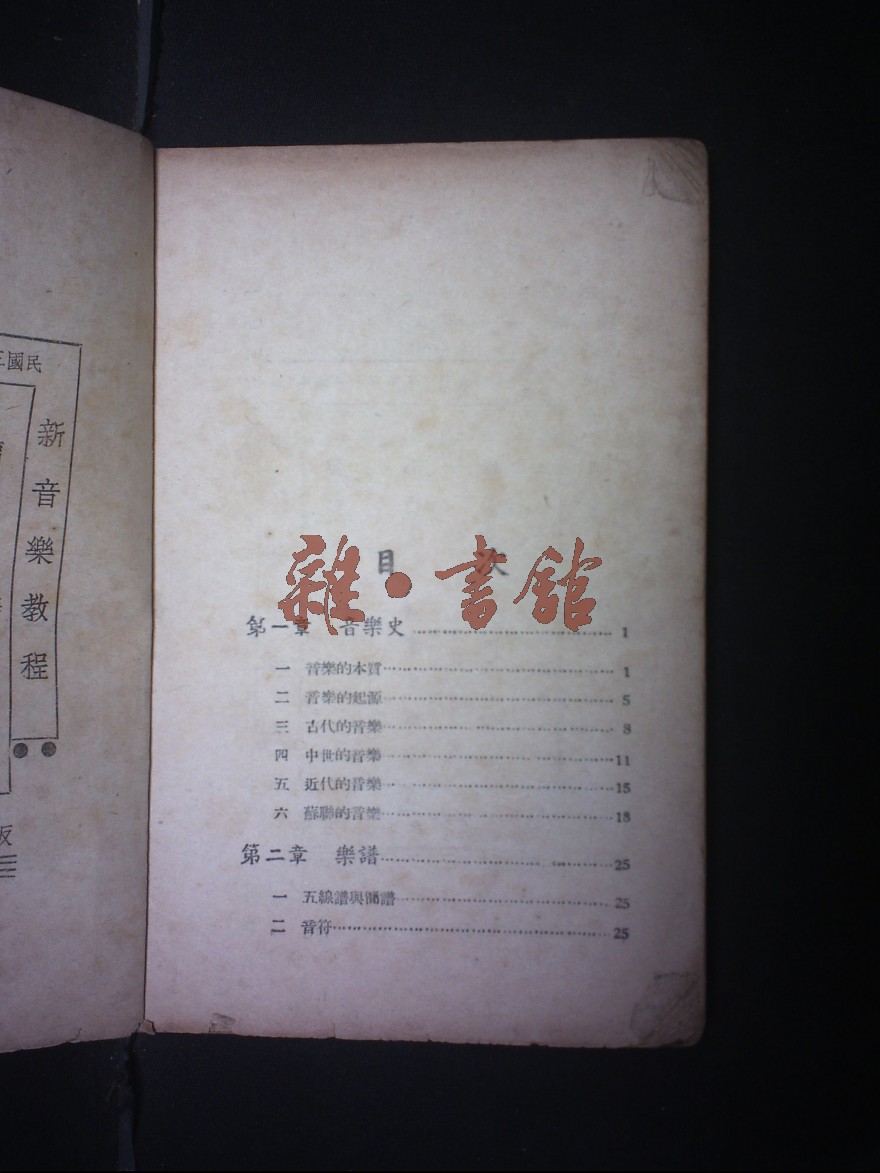 民國
新音樂教程
目 次
雜·書館
第一章 音樂史 1
一 音樂的本質 1
二 音樂的起源 5
三 古代的音樂 8
四 中世的音樂 11
五 近代的音樂 15
六 蘇聯的音樂 18
第二章 樂譜 25
一 五線譜與簡譜 25
二 音符 25